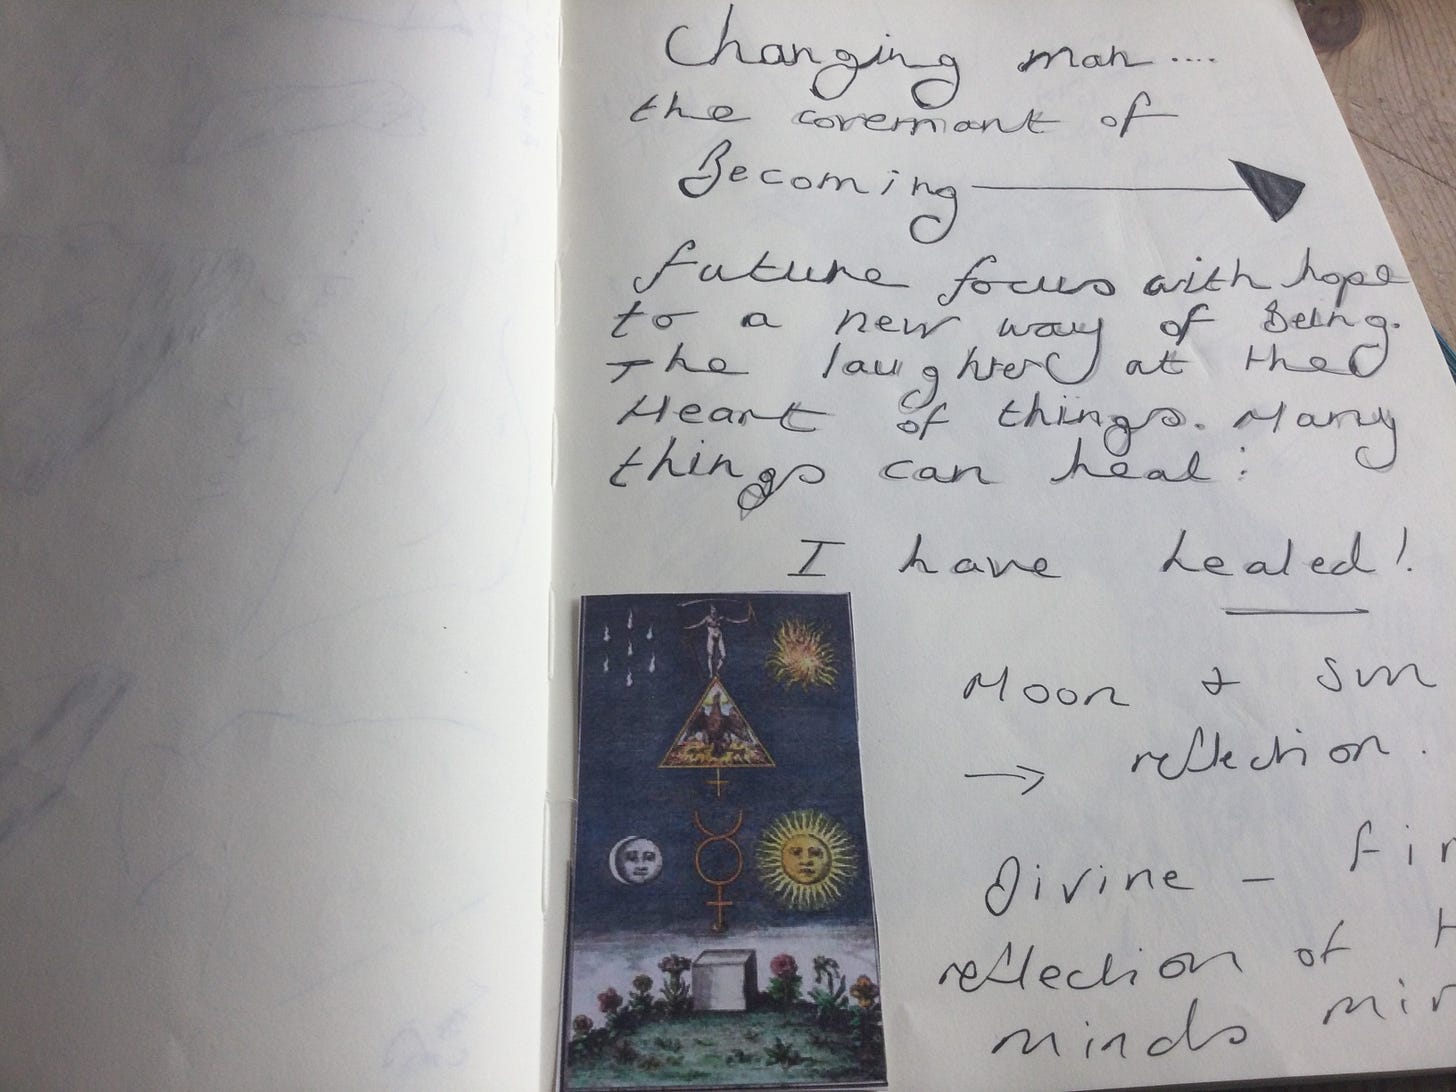 Changing man....
the covernant of
Becoming
future focus with hope
to a new way of Being.
The laughter at the
Heart of things. Many
things can heal:
I have healed!
Moon & Sun
→ reflection.
Divine - Fir
reflection of
minds mir